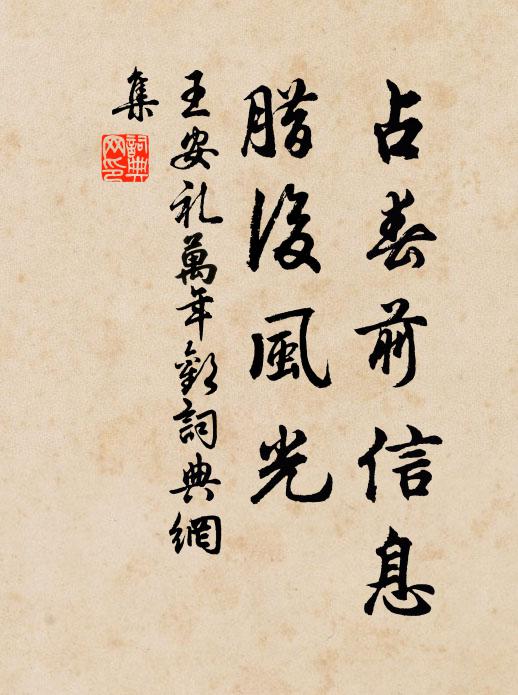 占春前信息
腊後風光
王安礼萬年歡詞典網
集
詞典
网印